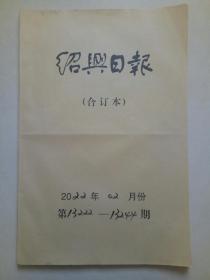 紹興日報
(合订本)
2022年 02 月份
第13222—13244期